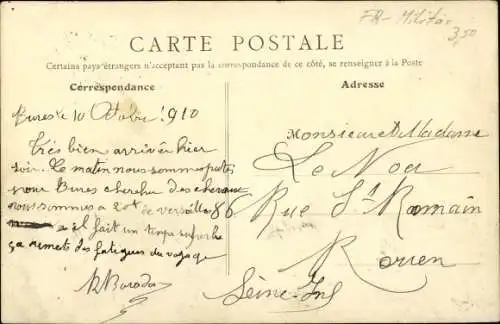 FR - Militär
3,50
CARTE POSTALE
Certains pays étrangers n'acceptent pas la correspondance de ce côté, se renseigner à la Poste
Correspondance
Adresse
Bures le 10 Octobre 1910
Très bien arrivée hier
soir. Ce matin nous sommes partis
pour Bures chercher des chevaux
nous sommes a 20 k de versailles
il fait un temps superbe
ça remet des fatigues du voyage
Monsieur et Madame
Le Noa
86 Rue St Romain
Rouen
Seine-Inf